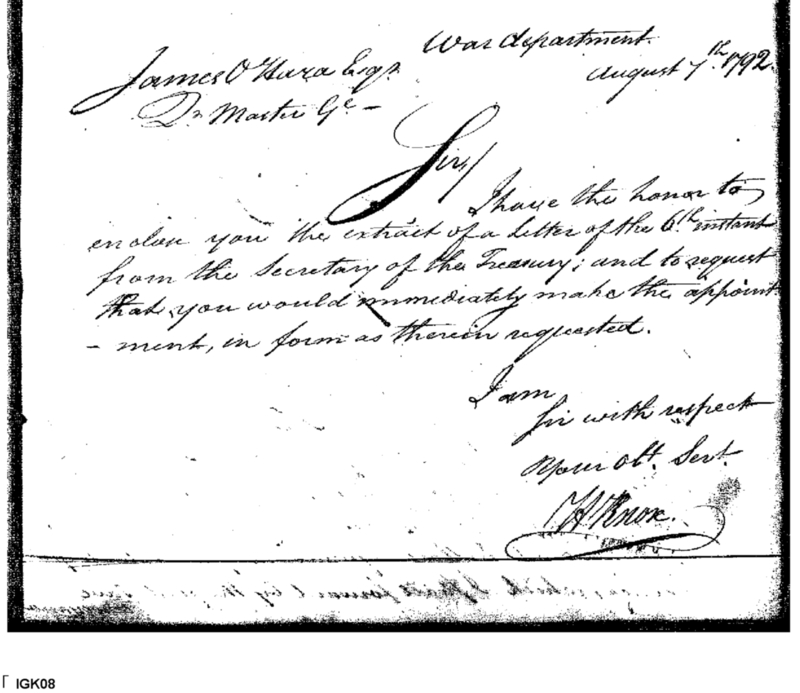 War department.
August 7th. 1792.
James O'Hara Esqr.
Qr. Master Gl. –
Sir,
I have the honor to
enclose you the extract of a Letter of the 6th. instant
from the Secretary of the Treasury; and to request
that you would immediately make the appoint
- ment, in form as therein requested.
I am
Sir with respect
Your Obt. Servt.
H Knox.
IGK08